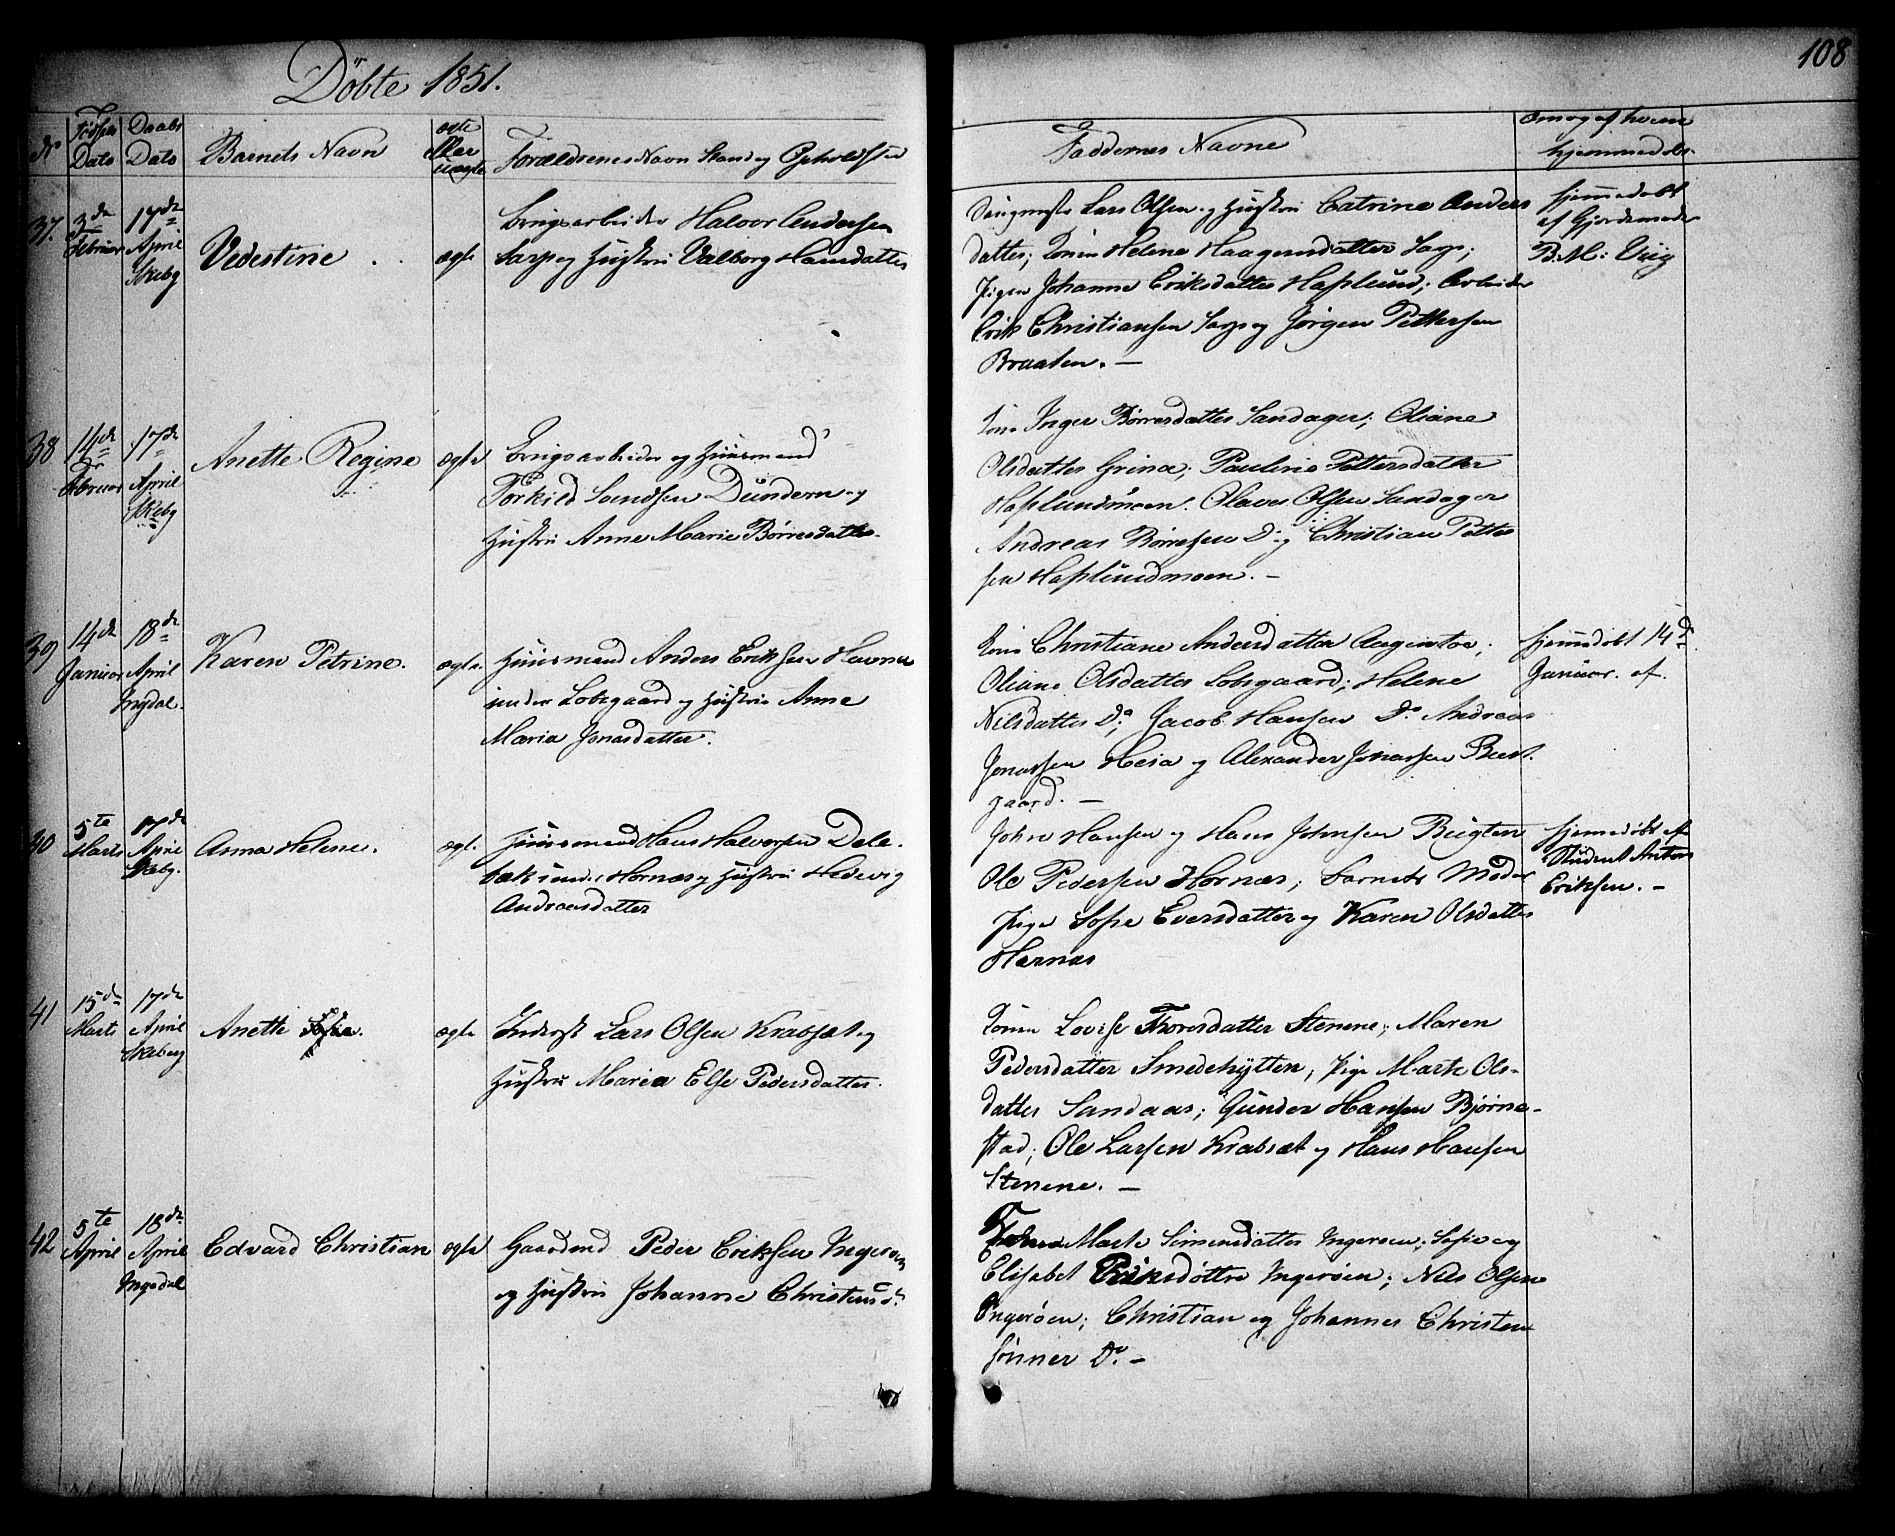 108
Döbte 1851.
No Fødsels Dato Daabs Dato Barnets Navn ægte eller uægte Forældrenes Navn Stand og Opholdsted
Faddernes Navne
om og af hvem hjemmedøbt
37. 3de Februar 17de April Skebg Vedestine ægte
Brugsarbeider Halvor Andersen
Sarp og Hustru Valborg Hansdatter
Lars Olsen og Hustru Catrine Anders
datter; Konen Helene Haagensdatter Sarp;
Pigen Johanne Eriksdatter Haslund; Arbeider
Erik Christiansen Sarp og Jörgen Pettersen
Braaten. —
hjemmedøbt
af Gjordemoder
B. M:
38 14de Februar 17de April Skebg Anette Regine ægte
Brugsarbeider og Huusmand
Torkild Svendsen Dündern og
Hustru Anne Marie Börresdatter.
Kone Inger Börresdatter Sandager; Oliane
Olsdatter Grina; Pauline Pettersdatter
Haslundmoen. Olaves Olsen Sandager
Andreas Börresen Do og Christian Petter
sen Haslundmoen. —
39 14de Januar 18de April Ingdal. Karen Petrine. ægte.
Huusmand Anders Eriksen Havna
under Lobsgaard og Hustru Anne
Maria Jonasdatter.
Kone Christiane Andersdatter
Oliane Olsdatter Lobsgaard; Helene
Nilsdatter Do, Jacob Hansen Do Andreas
Jonassen Heia og Alexander Jonassen Bust
gaard. —
hjemmedøbt 14de
Januar. af.
40 5te Marts 17de April Skebg. Anna Helene. ægte.
Huusmand Hans Halvorsen Dale
bæk under Hornæs og Hustru Hedevig
Andreasdatter
John Hansen og Hans Johnsen Bugten
Ole Pedersen Hornæs; Barnets Moder
Pige Sofie Eversdatter og Karen Olsdatter
Hornæs
hjemmedöbt af
Student Anton
Eriksen. —
41 15de Marts 17de April Skeberg Anette Sofie. ægte
Inderst Lars Olsen Krabsæt og
Hustru Maria Else Pedersdatter.
Konen Lovise Thoresdatter Stenene; Maren
Pedersdatter Smedehytten; Pige Marte Ols-
datter Sandaas; Gunder Hansen Bjørne-
stad; Ole Larsen Krabsæt og Hans Hansen
Stenene. —
42 5te April 18de April Ingedal Edvard Christian ægte
Gaardmd Peder Eriksen Ingerøen
og Hustru Johanne Christensd.
Marte Simensdatter Ingerøen; Sofie og
Elisabet Eriksdöttre Ingeröen; Nils Olsen
Ingeröen; Christian og Johannes Christen
sønner Do. —